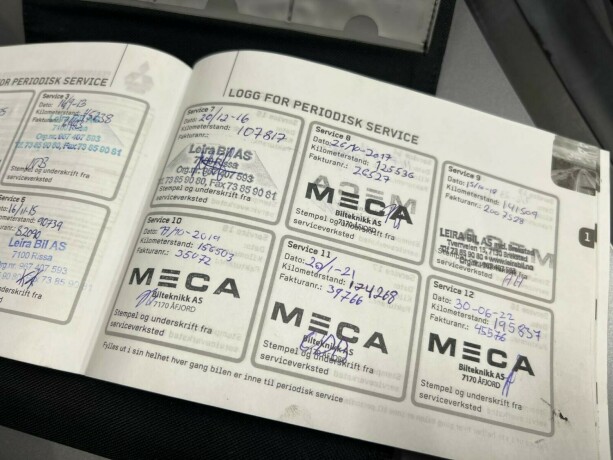 FOR PERIODISK SERVICE
Service 3
Dato:
Kilometerstand:
Fakturanr.:
7100 Rissa
Org.nr. 997 407 593
Fax 73 85 90 81
Stempel og underskrift fra
serviceverksted
Service 6
16/11-15
90739
52090
Leira Bil AS
7100 Rissa
Org.nr. 997 407 593
underskrift fra
LOGG FOR PERIODISK SERVICE
Service 7
Dato: 20/12-16
Kilometerstand:
107817
Fakturanr.:
Leira Bil AS
7100 Rissa
Org.nr. 997 407 593
73 85 90 80, Fax 73 85 90 81
Stempel og underskrift fra
serviceverksted
Service 8
Dato: 26/10-2017
Kilometerstand: 125536
Fakturanr.: 26527
MECA
Bilteknikk AS
7170 ÅFJORD
Stempel og underskrift fra
serviceverksted
Service 9
Dato:
Kilometerstand: 141509
Fakturanr.: 2002528
LEIRA BIL AS
Stempel og underskrift fra
serviceverksted
Service 10
Dato: 2019
Kilometerstand: 156503
Fakturanr.: 35072
MECA
Bilteknikk AS
7170 ÅFJORD
Stempel og underskrift fra
serviceverksted
Service 11
Dato: 20/1-21
Kilometerstand: 174268
Fakturanr.: 39766
MECA
Bilteknikk AS
7170 ÅFJORD
Stempel og underskrift fra
serviceverksted
Service 12
Dato: 30-06-22
Kilometerstand: 195837
Fakturanr.: 45576
MECA
Bilteknikk AS
7170 ÅFJORD
Stempel og underskrift fra
serviceverksted
Fylles ut i sin helhet hver gang bilen er inne til periodisk service
1